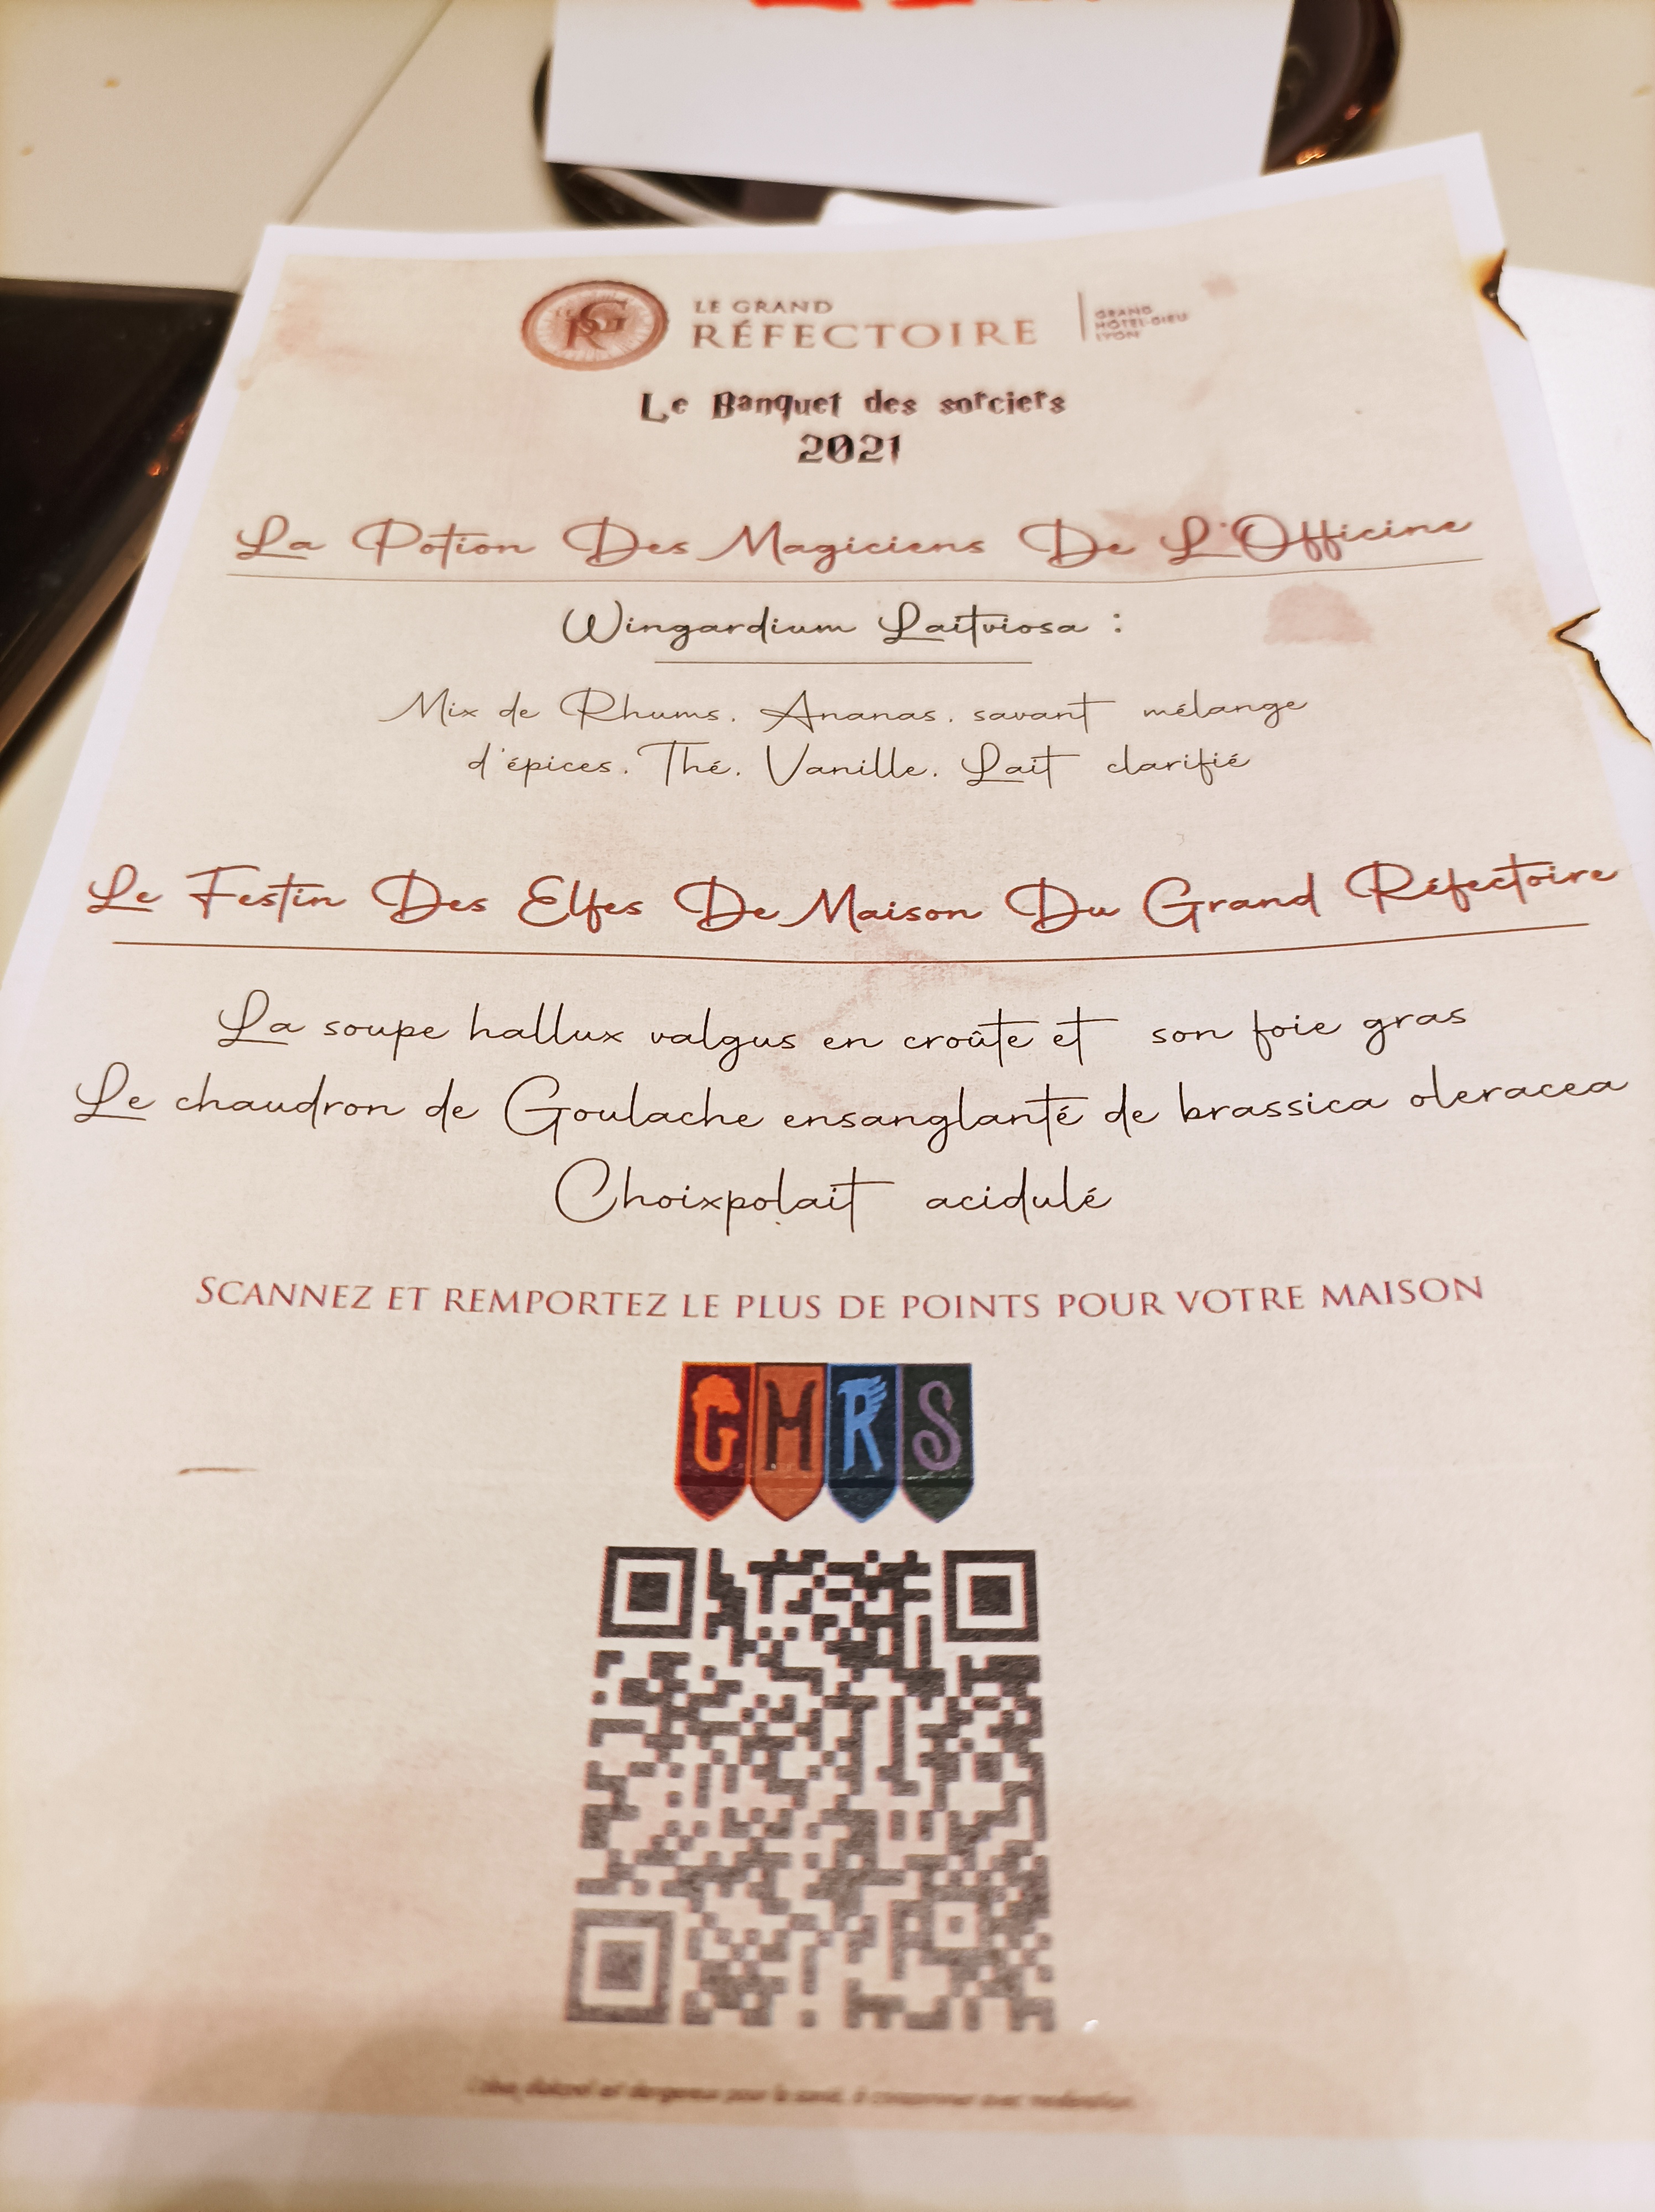 LE GRAND
RÉFECTOIRE
GRAND
HÔTEL-DIEU
LYON
Le Banquet des sorciers
2021
La Potion Des Magiciens De L'Officine
Wingardium Laitviosa :
Mix de Rhums, Ananas, savant mélange
d'épices, Thé, Vanille, Lait clarifié
Le Festin Des Elfes De Maison Du Grand Réfectoire
La soupe hallux valgus en croûte et son foie gras
Le chaudron de Goulache ensanglanté de brassica oleracea
Choixpolait acidulé
SCANNEZ ET REMPORTEZ LE PLUS DE POINTS POUR VOTRE MAISON
G H R S
L'abus d'alcool est dangereux pour la santé, à consommer avec modération.